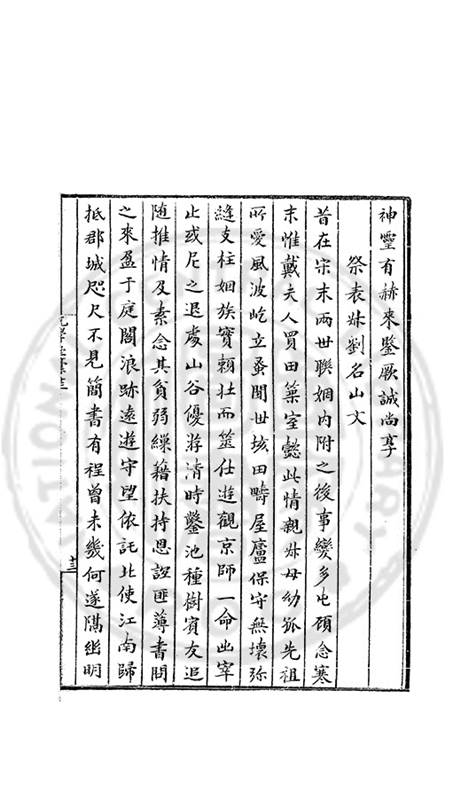 神靈有赫來鑒厥誠尚享
祭表妹劉名山文
昔在宋末兩世聯姻內附之後事變多屯顧念寒
末惟戴夫人買田築室懿此情親妹母幼孤先祖
所愛風波屹立蚤聞世垓田疇屋廬保守無壞弥
縫支柱姻族寶賴壯而筮仕遊觀京師一命出宰
止或尼之退處山谷優游清時鑿池種樹賓友追
随推情及素念其貧弱繰籍扶持恩誼匪薄書問
之來盈于庭閣浪跡遠遊守望依託北使江南歸
抵郡城咫尺不見簡書有程曾未幾何遂隔幽明
十三